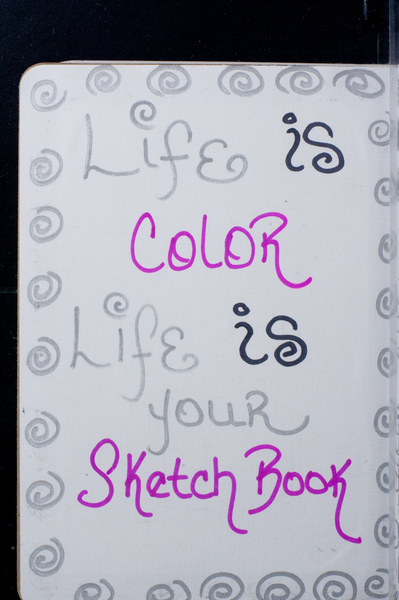 Life is
Color
Life is
your
Sketch Book